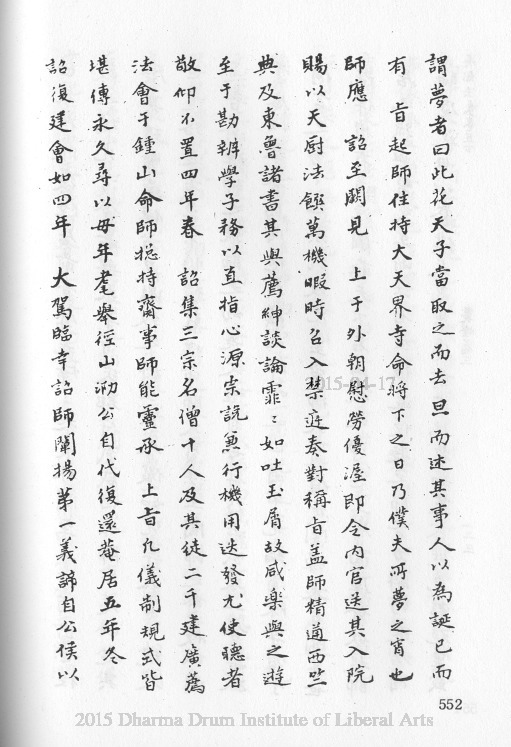 謂夢者曰此花天子當取之而去旦而述其事人以為誕已而
有　旨起師住持大天界寺命將下之日乃僕夫所夢之宵也
師應　詔至闕見　上于外朝慰勞優渥即令內官送其入院
賜以天廚法饌萬機暇時召入禁庭奏對稱旨盖師精通西竺
典及東魯諸書其與薦紳談論霏〻如吐玉屑故咸樂與之遊
至于勘辨學子務以直指心源宗說兼行機用迭發尤使聽者
敬仰不置四年春　詔集三宗名僧十人及其徒二千建廣薦
法會于鍾山命師揔持齋事師能靈承　上旨凡儀制規式皆
堪傳永久尋以母年耄舉徑山泐公自代復還菴居五年冬
詔復建會如四年　大駕臨幸詔師闡揚第一義諦自公侯以
552
2015-04-17
2015 Dharma Drum Institute of Liberal Arts